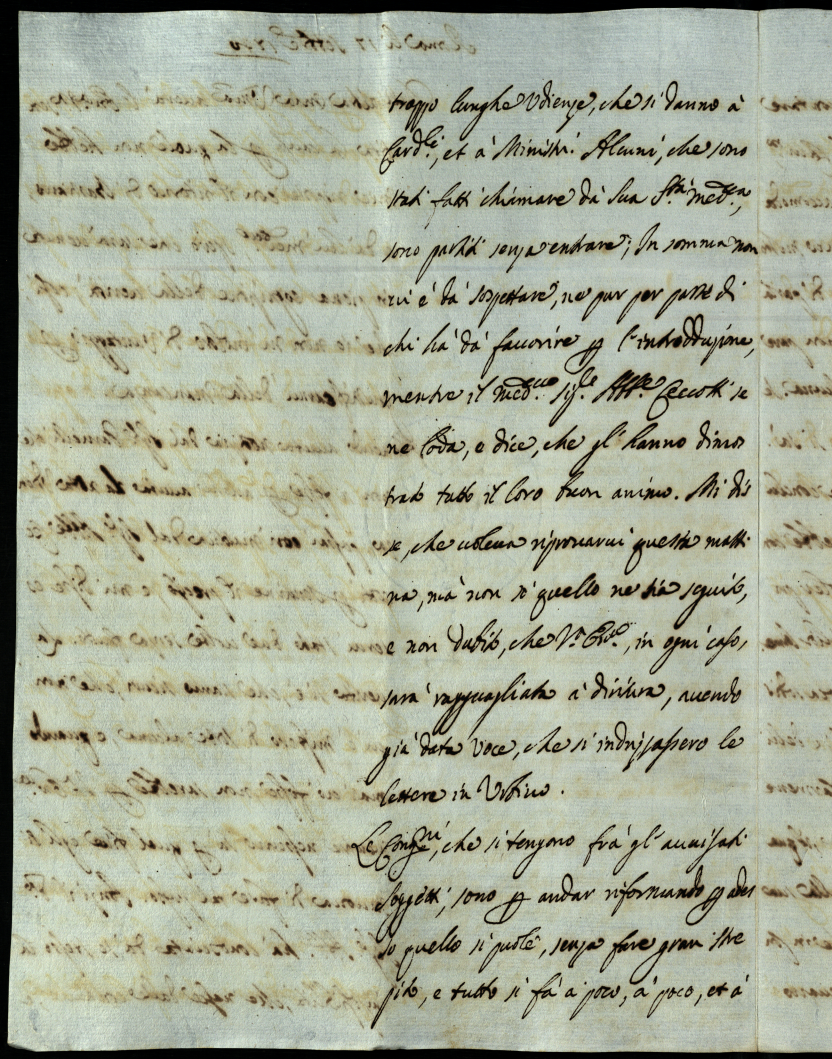 troppo lunghe Udienze, che si danno à
Card.li, et à Ministri. Alcuni, che sono
stati fatti chiamare dà Sua S.tà med.ma,
sono partiti senza entrare; In somma non
vi è dà sospettare, ne pur per parte di
chi hà dà favorire p l'introdduzione,
mentre il med.mo sig.re Ceccotti se
ne loda, e dice, che gl'hanno dimos
trato tutto il loro buon animo. Mi dis
se, che voleva riprovarvi questa matti
na, mà non sò quello ne sia seguito,
e non dubito, che V.ra Ecc.za, in ogni caso,
sarà ragguagliata à diritura, avendo
già data voce, che si indrizzassero le
lettere in Urbino.
Le Cong.ni, che si tengono frà gl'avvisati
Soggetti, sono p andar riformando p ades
so quello si puole, senza fare gran stre
pito, e tutto si fà à poco, à poco, et à